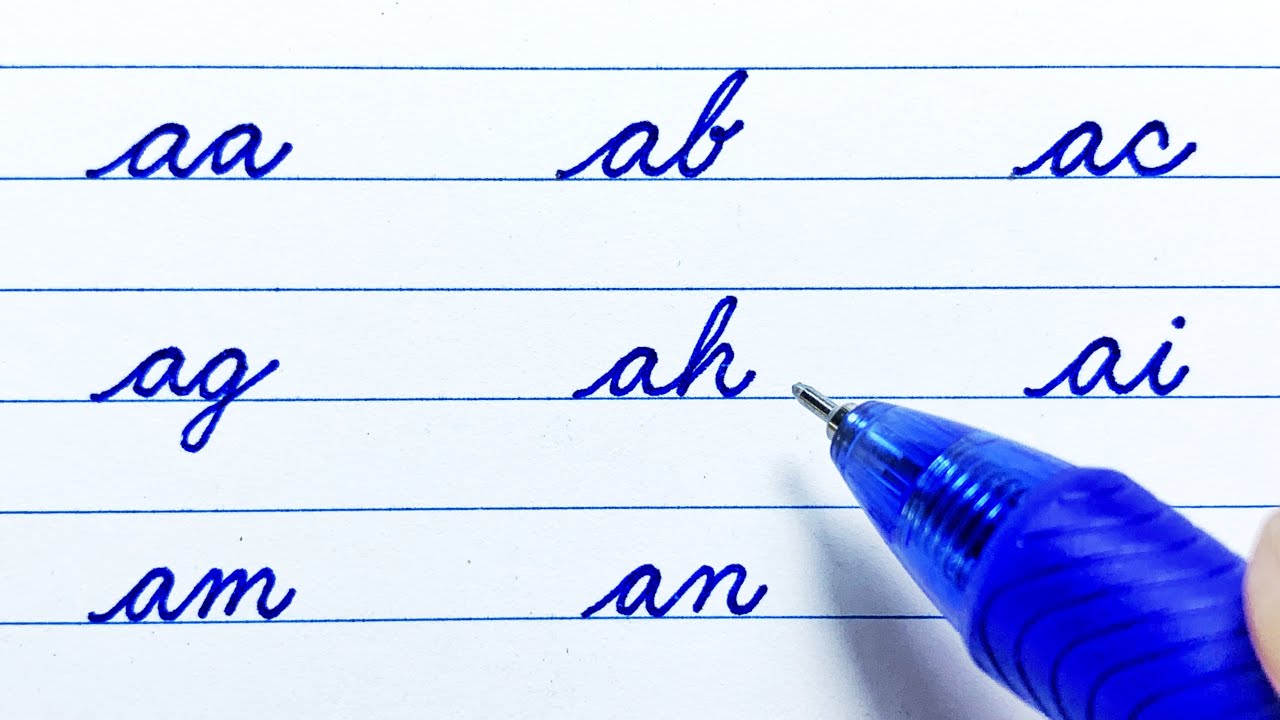 aa ab ac
ag ah ai
am an